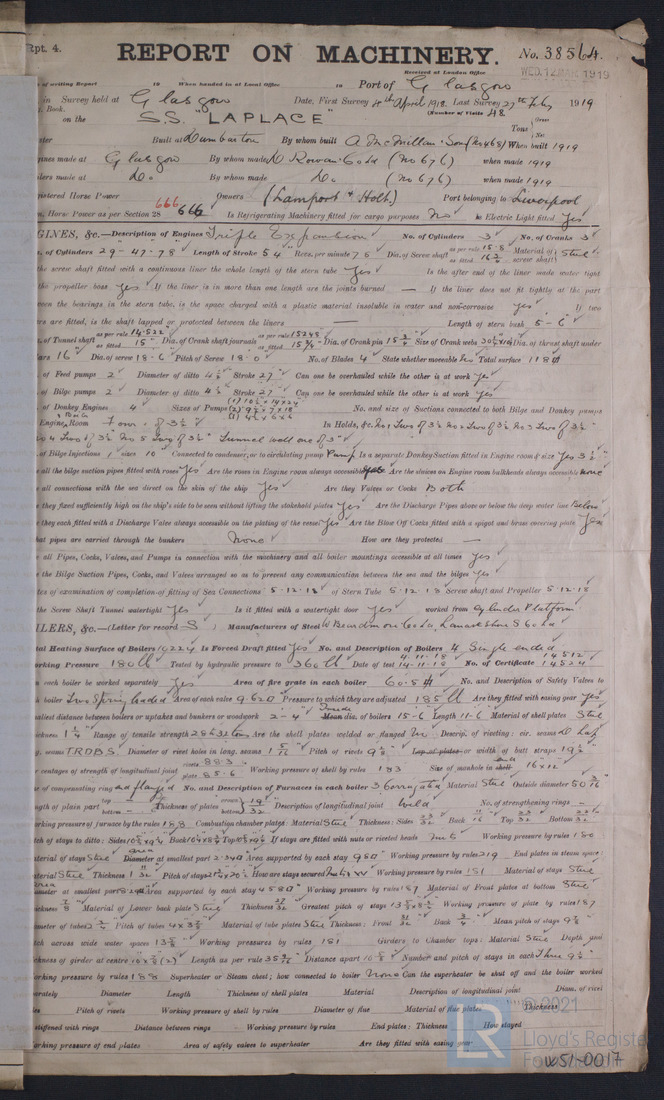 Rpt. 4.
REPORT ON MACHINERY.
No. 38564.
WED. 12 MAR. 1919
Received at London Office
of writing Report 19 When handed in at Local Office 19 Port of Glasgow
in Survey held at Glasgow Date, First Survey 4th April 1918 Last Survey 27th Feby 1919
Book. (Number of Visits 48
on the S.S. "LAPLACE" Tons Gross Net
Built at Dumbarton By whom built A. McMillan & Son (No 468) When built 1919
gines made at Glasgow By whom made D. Rowan & Co Ld (No 676) when made 1919
lers made at Do. By whom made Do. (No 676) when made 1919
gistered Horse Power Owners (Lamport & Holt.) Port belonging to Liverpool
Horse Power as per Section 28 666 666 Is Refrigerating Machinery fitted for cargo purposes No Is Electric Light fitted Yes
GINES, &c.—Description of Engines Triple Expansion No. of Cylinders 3 No. of Cranks 3
of Cylinders 29-47-78 Length of Stroke 54" Revs. per minute 75 Dia. of Screw shaft as per rule 15.8 as fitted 16 3/4 Material of screw shaft Steel
the screw shaft fitted with a continuous liner the whole length of the stern tube Yes Is the after end of the liner made water tight
the propeller boss Yes If the liner is in more than one length are the joints burned — If the liner does not fit tightly at the part
ween the bearings in the stern tube, is the space charged with a plastic material insoluble in water and non-corrosive Yes If two
rs are fitted, is the shaft lapped or protected between the liners — Length of stern bush 5-6
of Tunnel shaft as per rule 14.522 as fitted 15" Dia. of Crank shaft journals as per rule 15.248 as fitted 15 3/4 Dia. of Crank pin 15 3/4 Size of Crank webs Dia. of thrust shaft under
lars 16" Dia. of screw 18-6 Pitch of Screw 18-0 No. of Blades 4 State whether moveable Total surface 118
of Feed pumps 2 Diameter of ditto 4 1/2 Stroke 27" Can one be overhauled while the other is at work Yes
of Bilge pumps 2 Diameter of ditto 4 1/2 Stroke 27" Can one be overhauled while the other is at work Yes
of Donkey Engines 4 Sizes of Pumps No. and size of Suctions connected to both Bilge and Donkey pumps
Engine Room Four of 3 1/2 In Holds, &c. No 1 Two of 3 1/2 No 2 Two of 3 1/2 No 3 Two of 3 1/2
No 4 Two of 3 1/2 No 5 Two of 3 1/2 Tunnel well one of 3"
of Bilge Injections 1 sizes 10 Connected to condenser, or to circulating pump Pump Is a separate Donkey Suction fitted in Engine room & size Yes 3 1/2
all the bilge suction pipes fitted with roses Yes Are the roses in Engine room always accessible Yes Are the sluices on Engine room bulkheads always accessible none
all connections with the sea direct on the skin of the ship Yes Are they Valves or Cocks Both
they fixed sufficiently high on the ship's side to be seen without lifting the stokehold plates Yes Are the Discharge Pipes above or below the deep water line Below
they each fitted with a Discharge Valve always accessible on the plating of the vessel Yes Are the Blow Off Cocks fitted with a spigot and brass covering plate Yes
hat pipes are carried through the bunkers None How are they protected —
all Pipes, Cocks, Valves, and Pumps in connection with the machinery and all boiler mountings accessible at all times Yes
the Bilge Suction Pipes, Cocks, and Valves arranged so as to prevent any communication between the sea and the bilges Yes
tes of examination of completion of fitting of Sea Connections 5-12-18 of Stern Tube 5-12-18 Screw shaft and Propeller 5-12-18
the Screw Shaft Tunnel watertight Yes Is it fitted with a watertight door Yes worked from Cylinder Platform
ILERS, &c.—(Letter for record S) Manufacturers of Steel W Beardmore & Co Ld, Lanarkshire S Co Ld
tal Heating Surface of Boilers 10224 Is Forced Draft fitted Yes No. and Description of Boilers 4 Single ended
orking Pressure 180 lb Tested by hydraulic pressure to 360 lb Date of test 4.11.18 14-11-18 No. of Certificate 14512 14524
each boiler be worked separately Yes Area of fire grate in each boiler 60.5 No. and Description of Safety Valves to
h boiler Two Spring loaded Area of each valve 9.620 Pressure to which they are adjusted 185 lb Are they fitted with easing gear Yes
allest distance between boilers or uptakes and bunkers or woodwork 2-4" Inside Mean dia. of boilers 15-6 Length 11-6 Material of shell plates Steel
ickness 1 1/4 Range of tensile strength 28 to 32 tons Are the shell plates welded or flanged No Descrip. of riveting: cir. seams D. Lap
g. seams T.R.D.B.S. Diameter of rivet holes in long. seams 1 5/16 Pitch of rivets 9 1/8 Lap of plates or width of butt straps 19 1/2
r centages of strength of longitudinal joint rivets 88.3 plate 85.6 Working pressure of shell by rules 183 Size of manhole in 16"x12"
e of compensating ring end flanged No. and Description of Furnaces in each boiler 3 Corrugated Material Steel Outside diameter 50 3/16
ngth of plain part top — bottom — Thickness of plates crown bottom 19/32 Description of longitudinal joint Weld No. of strengthening rings —
orking pressure of furnace by the rules 188 Combustion chamber plates: Material Steel Thickness: Sides 23/32 Back 11/16 Top 23/32 Bottom
tch of stays to ditto: Sides Back Top If stays are fitted with nuts or riveted heads Nuts Working pressure by rules 180
aterial of stays Steel area Diameter at smallest part 2.240 Area supported by each stay Working pressure by rules 219 End plates in steam space
aterial Steel Thickness 1 1/32 Pitch of stays How are stays secured Working pressure by rules 181 Material of stays Steel
area ameter at smallest part Area supported by each stay 4580 Working pressure by rules 187 Material of Front plates at bottom Steel
ickness 7/8 Material of Lower back plate Steel Thickness Greatest pitch of stays Working pressure of plate by rules 187
ameter of tubes 2 3/4 Pitch of tubes Material of tube plates Steel Thickness: Front 31/32 Back 3/4 Mean pitch of stays 9 5/8
tch across wide water spaces 13 5/8 Working pressures by rules 181 Girders to Chamber tops: Material Steel Depth and
ickness of girder at centre Length as per rule Distance apart Number and pitch of stays in each Three 9 1/2
orking pressure by rules 188 Superheater or Steam chest; how connected to boiler None Can the superheater be shut off and the boiler worked
parately Diameter Length Thickness of shell plates Material Description of longitudinal joint Diam. of rivet
les Pitch of rivets Working pressure of shell by rules Diameter of flue Material of flue plates Thickness
stiffened with rings Distance between rings Working pressure by rules End plates: Thickness How stayed
orking pressure of end plates Area of safety valves to superheater Are they fitted with easing gear
© 2021
LR
Lloyd's Register
Foundation
W51-0017